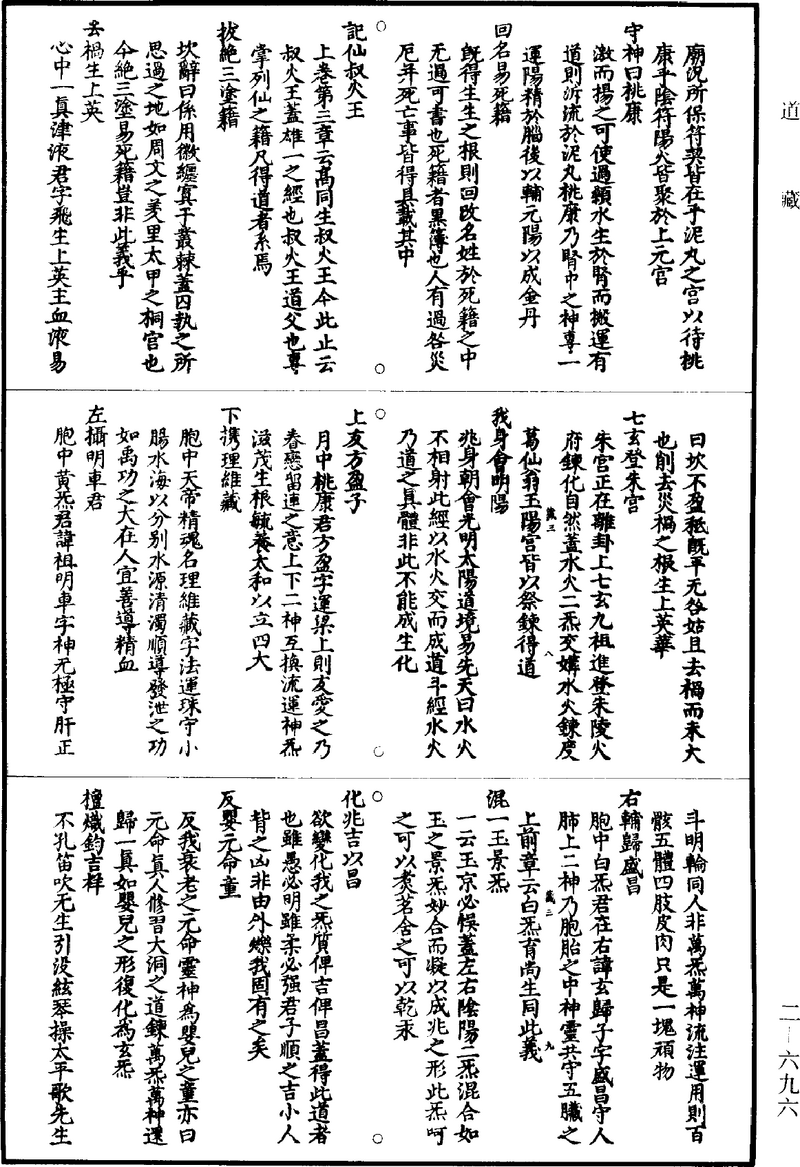 道藏
廟況所保符契皆在乎泥丸之宮以待桃
康平陰符陽火皆聚於上元宮
守神曰桃康
激而揚之可使過顙水生於腎而搬運有
道則泝流於泥丸桃康乃腎中之神專一
運陽精於腦後以輔元陽以成金丹
回名易死籍
旣得生生之根則回改名姓於死籍之中
无過可書也死籍者黑簿也人有過咎災
厄并死亡事皆得具載其中
○
記仙叔火王
上卷第三章云高同生叔火王今此止云
叔火王蓋雄一之經也叔火王道父也專
掌列仙之籍凡得道者系焉
拔絶三塗籍
坎辭曰係用徽纆寘于叢棘蓋囚執之所
思過之地如周文之羑里太甲之桐宮也
今絶三塗易死籍豈非此義乎
去禍生上英
心中一眞津液君字飛生上英主血液易
曰坎不盈秪旣平无咎姑且去禍而未大
也削去災禍之根生上英華
七玄登朱宮
朱宮正在離卦上七玄九祖進登朱陵火
府鍊化自然蓋水火二炁交媾水火鍊度
葛仙翁玉陽宮皆以祭鍊得道
藏三
八
我身會明陽
兆身朝會光明太陽道境易先天曰水火
不相射此經以水火交而成道斗經水火
乃道之具體非此不能成生化
○
上友方盈子
月中桃康君方盈字運梁上則友愛之乃
眷戀留連之意上下二神互換流運神炁
滋茂生根毓養太和以立四大
下携理維藏
胞中天帝精魂名理維藏字法運珠守小
腸水海以分別水源清濁順導發泄之功
如禹功之大在人宜善導精血
左攝明車君
胞中黄炁君諱祖明車字神无極守肝正
斗明輪同人非萬炁萬神流注運用則百
骸五體四肢皮肉只是一塊頑物
右輔歸盛昌
胞中白炁君在右諱玄歸子字盛昌守人
肺上二神乃胞胎之中神靈共守五臟之
上前章云白炁育尚生同此義
藏三
九
混一玉景炁
一云玉京必悞蓋左右陰陽二炁混合如
玉之景炁妙合而凝以成兆之形此炁呵
之可以煑茗含之可以乾汞
○
化兆吉以昌
欲變化我之炁質俾吉俾昌蓋得此道者
也雖愚必明雖柔必强君子順之吉小人
背之凶非由外爍我固有之矣
反嬰元命童
反我衰老之元命靈神爲嬰兒之童亦曰
元命眞人修習大洞之道鍊萬炁萬神還
歸一眞如嬰兒之形復化爲玄炁
檀熾鈞吉梓
不孔笛吹无生引没絃琴操太平歌先生
二—六九六